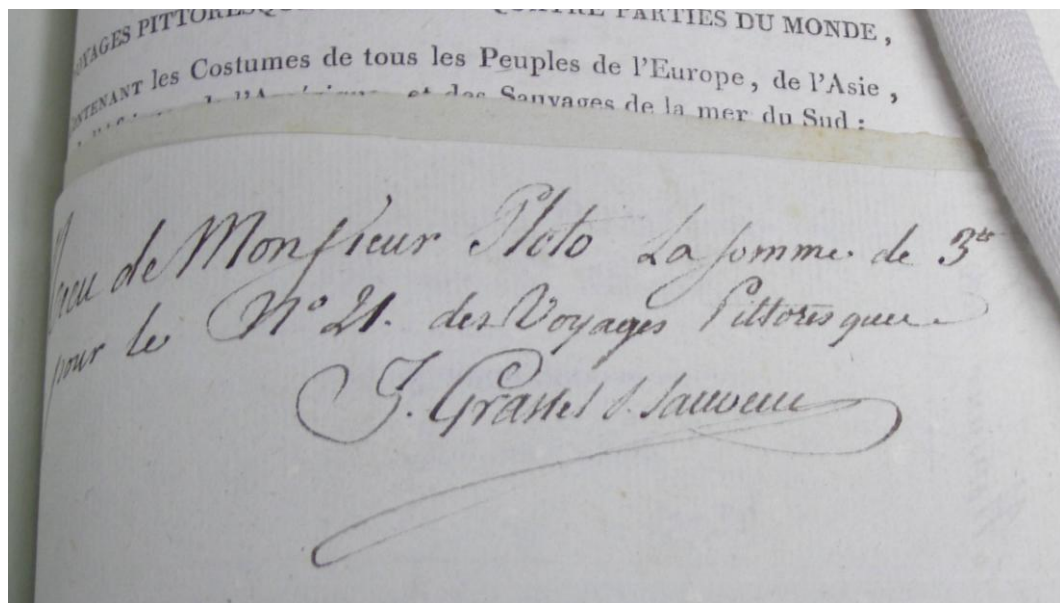 VOYAGES PITTORESQUES QUATRE PARTIES DU MONDE,
CONTENANT les Costumes de tous les Peuples de l'Europe, de l'Asie,
de l'Amérique, et des Sauvages de la mer du Sud :
Reçu de Monsieur Ploto La somme de 3tt
pour le N° 21. des Voyages Pittoresques
J. Grasset S. Sauveur